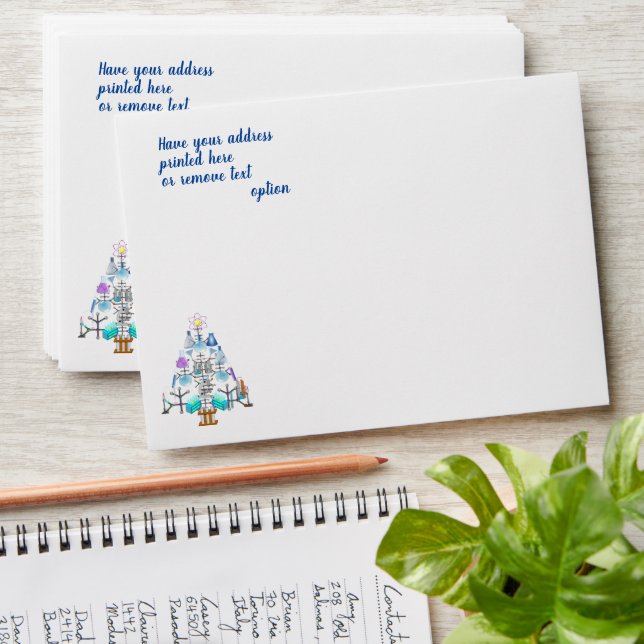 Have your address
printed here
or remove text
Have your address
printed here
or remove text
option
Contacts
Amy
208 
Salinas,
Brian
70 
Torino
Italy
Casey
6450
Pasad
Clav
1442
Mode
Dad
2414
Dav
318